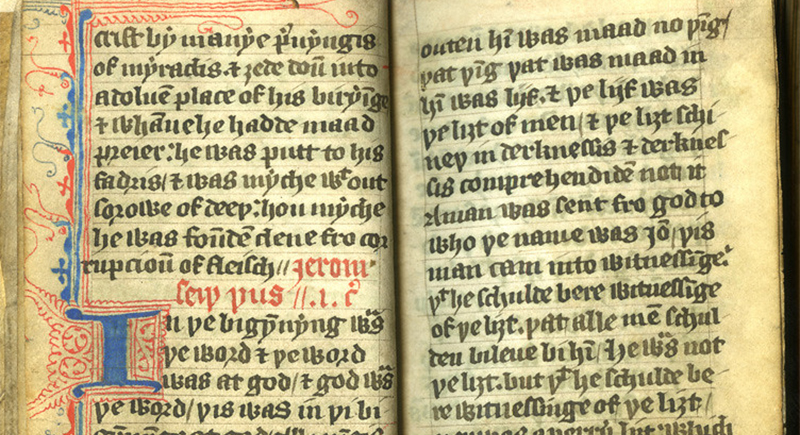 crist by manye p̄uyngis
of myraclis ⁊ ȝede doū into
a doluen place of his buryinge
⁊ whāne he hadde maad
preier: he was putt to his
fadris/ ⁊ was myche wᵗ out
sorowe of deeþ: hou myche
he was foūden clene fro cor
rupcioū of fleisch// Jerom
seiþ þus //.1. c̄
In þe bigynnyng wᵃs
þe word ⁊ þe word
was at god/ ⁊ god wᵃs
þe word/ þis was in þe bi
outen hī was maad no þīg/
þat þīg þat was maad in
hī was lijf. ⁊ þe lijf was
þe liȝt of men/ ⁊ þe liȝt schi
neþ in derknessis ⁊ derknes
sis comprehendiden not it
A man was sent fro god to
who þe name was Jōn/ þis
man cam into witnessīge.
þᵗ he schulde bere witnessīge
of þe liȝt. þat alle mē schul
den bileue bi hī/ he wᵃs not
þe liȝt. but þᵗ he schulde be
re witnessinge of þe liȝt/